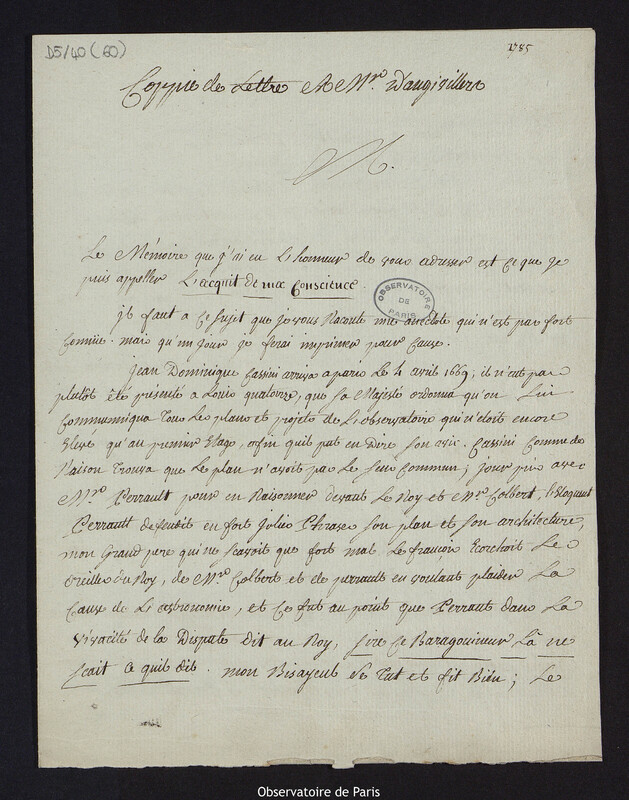 D5/40 (60)
1785
Coppie de Lettre A Mr. Dangivillers
M.
Le Mémoire que j'ai eu L'honneur de vous adresser est ce que je
puis appeller L'acquit de ma Conscience.
OBSERVATOIRE
DE
PARIS
il faut a ce sujet que je vous Raconte une anecdote qui n'est pas fort
Connüe. mais qu'un jour je ferai imprimer pour Cause.
jean Dominique Cassini arriva a paris le 4 avril 1669; il n'eut pas
plutôt été présenté a Louis quatorze, que sa Majesté ordonna qu'on lui
Communiqua Tous Les plans et projets de L'observatoire qui n'étoit encore
Elevé qu'au premier Etage, afin quil put en Dire son avis. Cassini Comme de
Raison Trouva que Le plan n'avoit pas Le sens Commun; jour pris avec
Mr. Perrault pour en Raisonner devant Le Roy et Mr. Colbert, l'Eloquent
Perrault defendit en fort jolies Phrases Son plan et Son architecture,
mon Grand pere qui ne sçavoit que fort mal Le francois Ecorchoit Les
oreilles du Roy, de Mr. Colbert et de perrault en voulant plaider La
Cause de L'astronomie, et ce fut au point que Perraut dans La
vivacité de la Dispute dit au Roy, sire ce Baragouineur Là ne
sçait ce quil dit. mon Bisayeul se Tut et fit Bien; Le
Observatoire de Paris